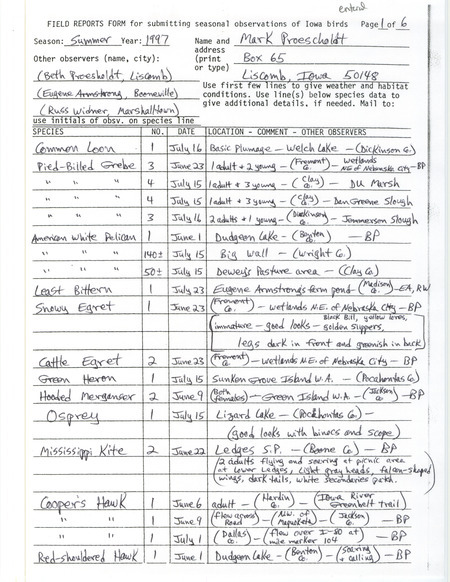 entered
FIELD REPORTS FORM for submitting seasonal observations of Iowa birds Page 1 of 6
Season: Summer Year: 1997 Name and address (print or type) Mark Proescholdt
Other observers (name, city): Box 65
(Beth Proescholdt, Liscomb) Liscomb, Iowa 50148
(Eugene Armstrong, Booneville) Use first few lines to give weather and habitat conditions. Use line(s) below species data to give additional details, if needed. Mail to:
(Russ Widner, Marshalltown)
use initials of obsv. on species line
SPECIES NO. DATE LOCATION - COMMENT - OTHER OBSERVERS
Common Loon 1 July 16 Basic Plumage - Welch Lake - (Dickinson Co.)
Pied-Billed Grebe 3 June 23 1 adult + 2 young - (Fremont Co.) - wetlands N.E. of Nebraska City - BP
" " " 4 July 15 1 adult + 3 young - (Clay Co.) - DU Marsh
" " " 4 July 15 1 adult + 3 young - (Clay Co.) - Dan Greene Slough
" " " 3 July 16 2 adults + 1 young - (Dickinson Co.) - Jemmerson Slough
American White Pelican 1 June 1 Dudgeon Lake - (Benton Co.) - BP
" " " 140± July 15 Big Wall - (Wright Co.)
" " " 50± July 15 Dewey's Pasture area - (Clay Co.)
Least Bittern 1 July 23 Eugene Armstrong's farm pond - (Madison Co.) - EA, RW
Snowy Egret 1 June 23 (Fremont Co.) - wetlands N.E. of Nebraska City - BP
immature - good looks - Black Bill, yellow lores, golden slippers,
legs dark in front and greenish in back
Cattle Egret 2 June 23 (Fremont Co.) - wetlands N.E. of Nebraska City - BP
Green Heron 1 July 15 Sunken Grove Island W.A. - (Pocahontas Co.)
Hooded Merganser 2 June 9 (Both females) - Green Island W.A. - (Jackson Co.) - BP
Osprey 1 July 15 Lizard Lake - (Pocahontas Co.) -
(good looks with binocs and scope)
Mississippi Kite 2 June 22 Ledges S.P. - (Boone Co.) - BP
(2 adults flying and soaring at picnic area
at Lower Ledges, Light gray heads, falcon-shaped
wings, dark tails, white secondaries patch.)
Cooper's Hawk 1 June 6 adult - (Hardin Co.) - (Iowa River Greenbelt trail)
" " 1 June 9 (flew across Road) - (N.W. of Maquoketa) - (Jackson Co.) - BP
" " 1 July 1 (Dallas Co.) - (flew over I-80 at mile marker 104) - BP
Red-shouldered Hawk 1 June 1 Dudgeon Lake - (Benton Co.) - (soaring + calling) - BP